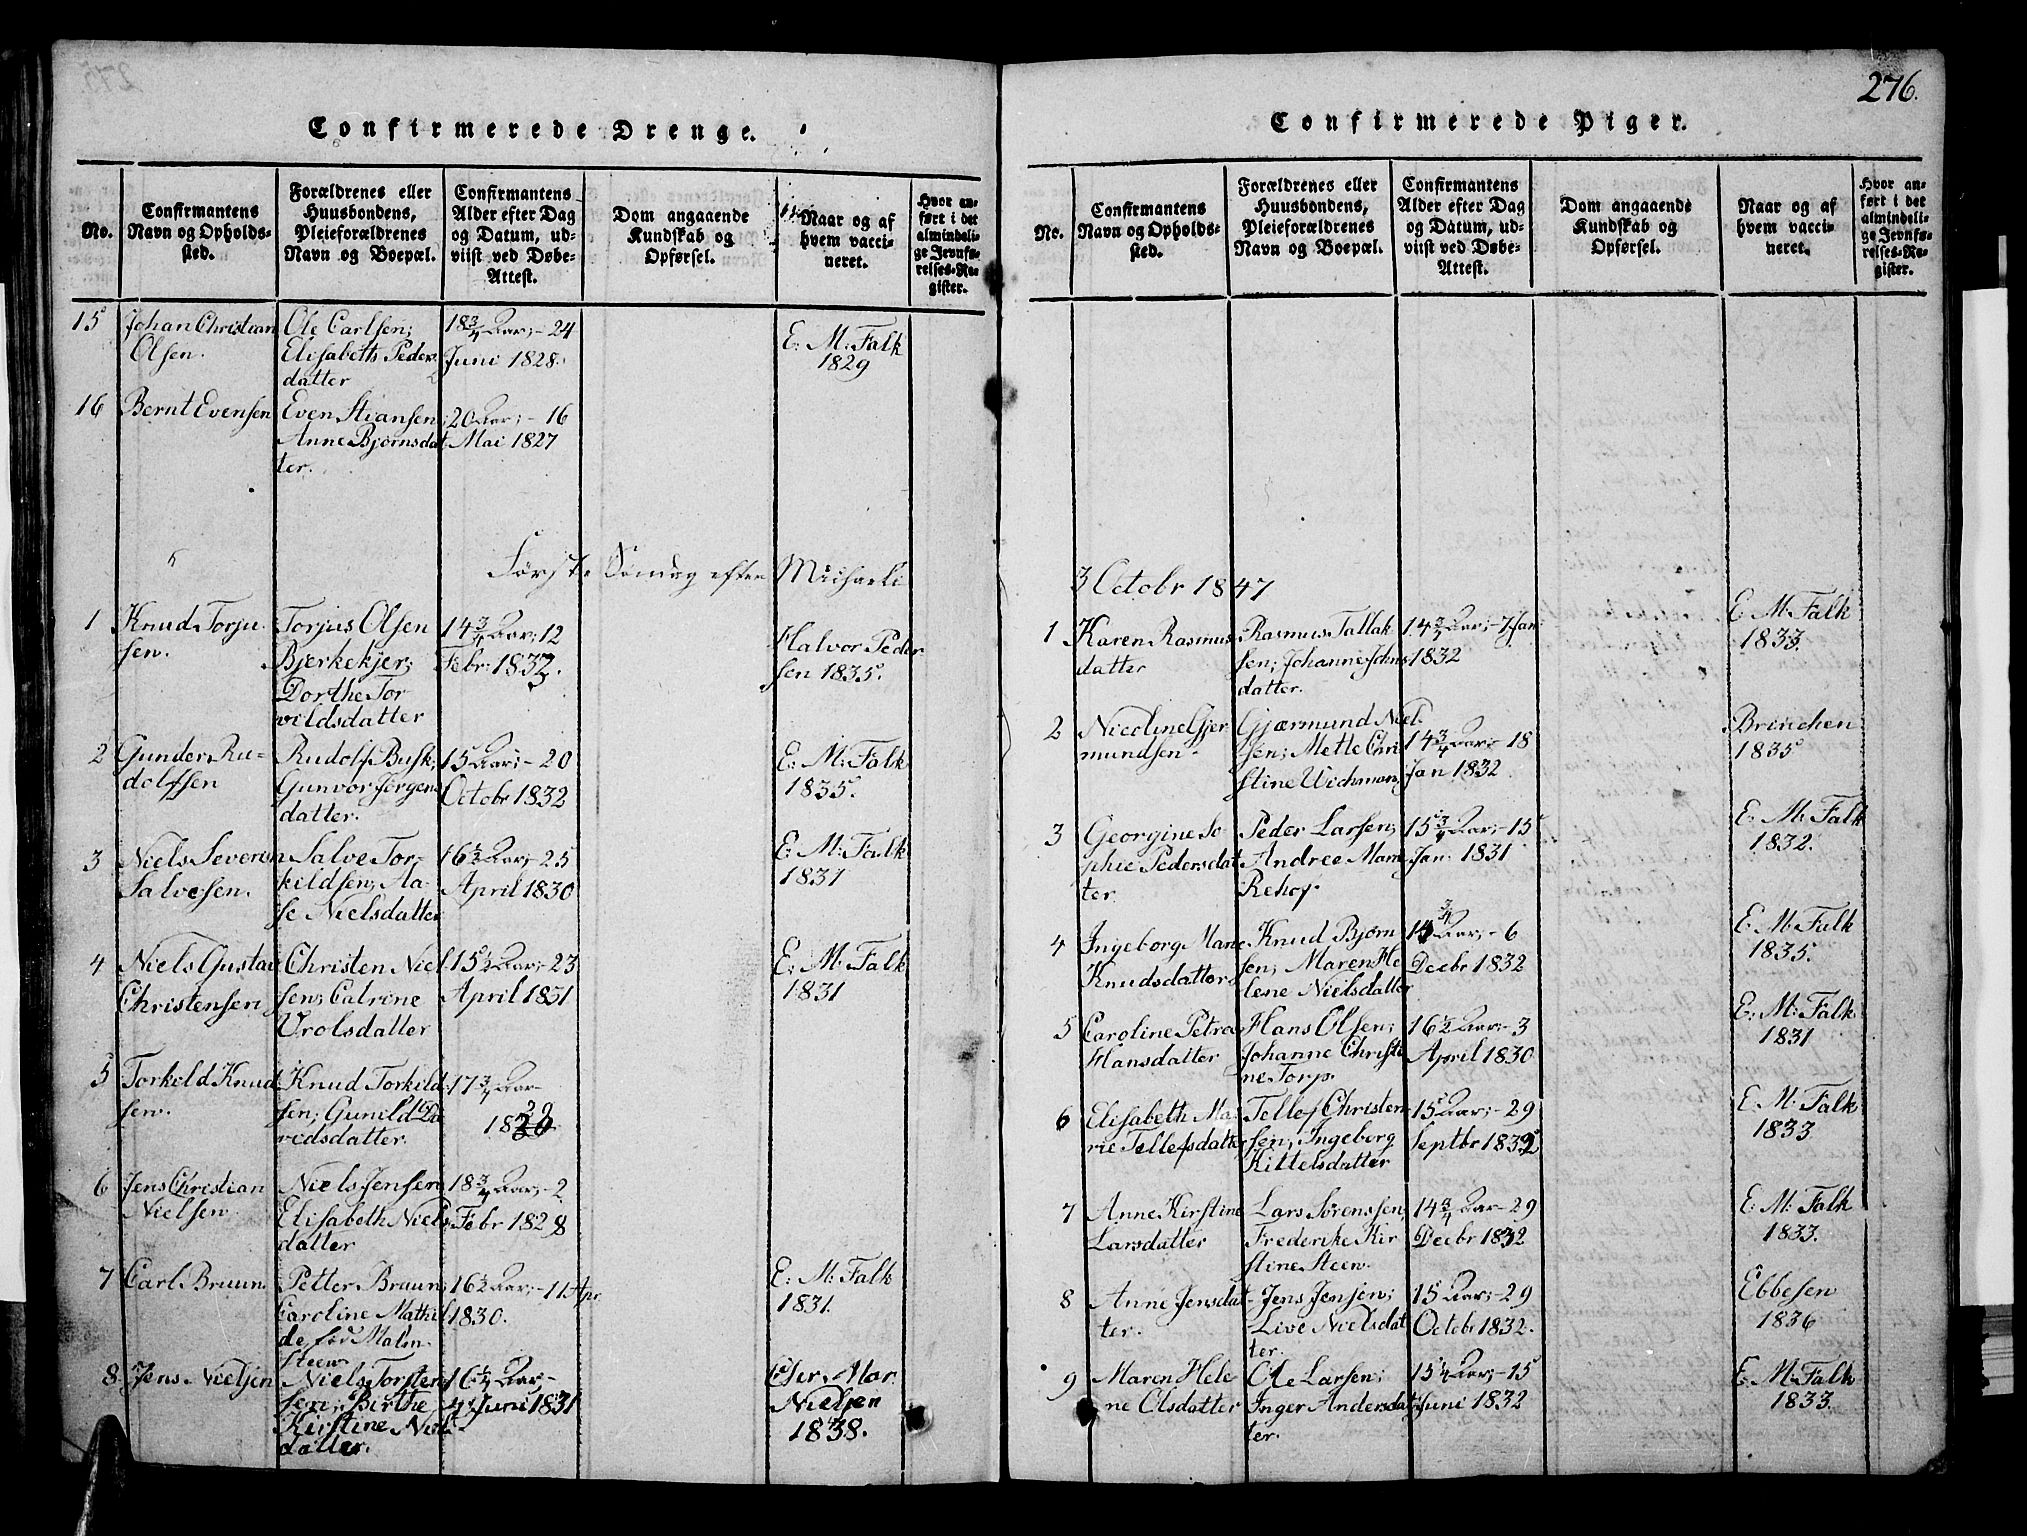 276.
Confirmerede Drenge.
No.
Confirmantens
Navn og Opholds-
sted.
Forældrenes eller
Huusbondens,
Pleieforældrenes
Navn og Boepæl.
Confirmantens
Alder efter Dag
og Datum, ud-
viist ved Døbe-
Attest.
Dom angaaende
Kundskab og
Opførsel.
Naar og af
hvem vacci-
neret.
Hvor an-
ført i det
almindeli-
ge Jevnfø-
relses-Re-
gister.
15
Johan Christian
Olsen.
Ole Carlsen;
Elisabeth Peders
datter
18 3/4 Aar; - 24
Juni 1828.
E: M: Falk
1829
16
Bernt Evensen
Even Stiansen;
Anne Bjørnsdat
ter.
20 Aar; - 16
Mai 1827
Første Søndag efter Michaeli
1
Knud Torju
sen.
Torjus Olsen
Bjerkekjer;
Dorthe Tor
vildsdatter
14 3/4 Aar; 12
Febr: 1832.
Halvor Peder
sen 1835.
2
Gunder Ru-
dolfsen
Rudolf Busk;
Gunvor Jørgens
datter.
15 Aar; - 20
Octobr 1832
E: M: Falk
1835.
3
Niels Severin
Salvesen.
Salve Tor-
kildsen; Aa-
se Nielsdatter
16 1/2 Aar; - 25
April 1830
E: M: Falk
1831
4
Niels Gustav
Christensen
Christen Niel
sen; Catrine
Vrolsdatter
15 1/2 Aar; - 23
April 1831
E: M: Falk
1831
5
Torkeld Knud
sen.
Knud Torkild
sen; Gunild Da
vidsdatter.
17 3/4 Aar-
29
1820
6
Jens Christian
Nielsen
Niels Jensen
Elisabeth Niels
datter
18 3/4 Aar; - 2
Febr 1828
7
Carl Bruun
Petter Bruun;
Caroline Mathil
de, fød Malm-
steen
16 1/2 Aar; - 11 Apr.
1830.
E: M: Falk
1831.
8
Jens Nielsen
Niels Torsten
sen; Birthe
Kirstine Niels
datter.
16 1/4 Aar; -
4 Juni 1831
Chr. Mar.
Nielsen
1838.
Confirmerede Piger.
No.
Confirmantens
Navn og Opholds-
sted.
Forældrenes eller
Huusbondens,
Pleieforældrenes
Navn og Boepæl.
Confirmantens
Alder efter Dag
og Datum, ud-
viist ved Døbe-
Attest.
Dom angaaende
Kundskab og
Opførsel.
Naar og af
hvem vacci-
neret.
Hvor an-
ført i det
almindeli-
ge Jevnfø-
relses-Re-
gister.
3 Octobr 1847
1
Karen Rasmus
datter
Rasmus Tallak
sen; Johanne Johns
datter.
14 3/4 Aar; - 7 Jan
1832
E: M: Falk
1833.
2
Nicoline Gjer
mundsen
Gjærmund Niel
sen; Mette Chri
stine Wichmann
14 3/4 Aar; - 18
Jan 1832
Brinchen
1835
3
Georgine So
phie Pedersdat
ter
Peder Larsen;
Andree Marie
Rehoy
15 3/4 Aar; - 15
Jan. 1831
E: M: Falk
1832.
4
Ingeborg Marie
Knudsdatter
Knud Bjørn
sen; Maren He
lene Nielsdatter
14 3/4 Aar; - 6
Decbr 1832
E: M: Falk
1835.
5
Caroline Petra
Hansdatter
Hans Olsen;
Johanne Christi
ne Torp.
16 1/2 Aar; - 3
April 1830
E: M: Falk
1831
6
Elisabeth Ma
rie Tellefsdatter
Tellef Christen
sen; Ingeborg
Kittelsdatter
15 Aar; - 29
Septbr 1832
E: M: Falk
1833
7
Anne Kirstine
Larsdatter
Lars Sørenssen;
Frederike Kir
stine Steen
14 3/4 Aar - 29
Decbr 1832
E: M: Falk
1833.
8
Anne Jensdat
ter.
Jens Jensen;
Live Nielsdat
ter.
15 Aar; - 29
Octobr 1832.
Ebbesen
1836
9
Maren Hele
ne Olsdatter
Ole Larsen;
Inger Andersdat
ter.
15 1/4 Aar; - 15
Juni 1832
E: M: Falk
1833.